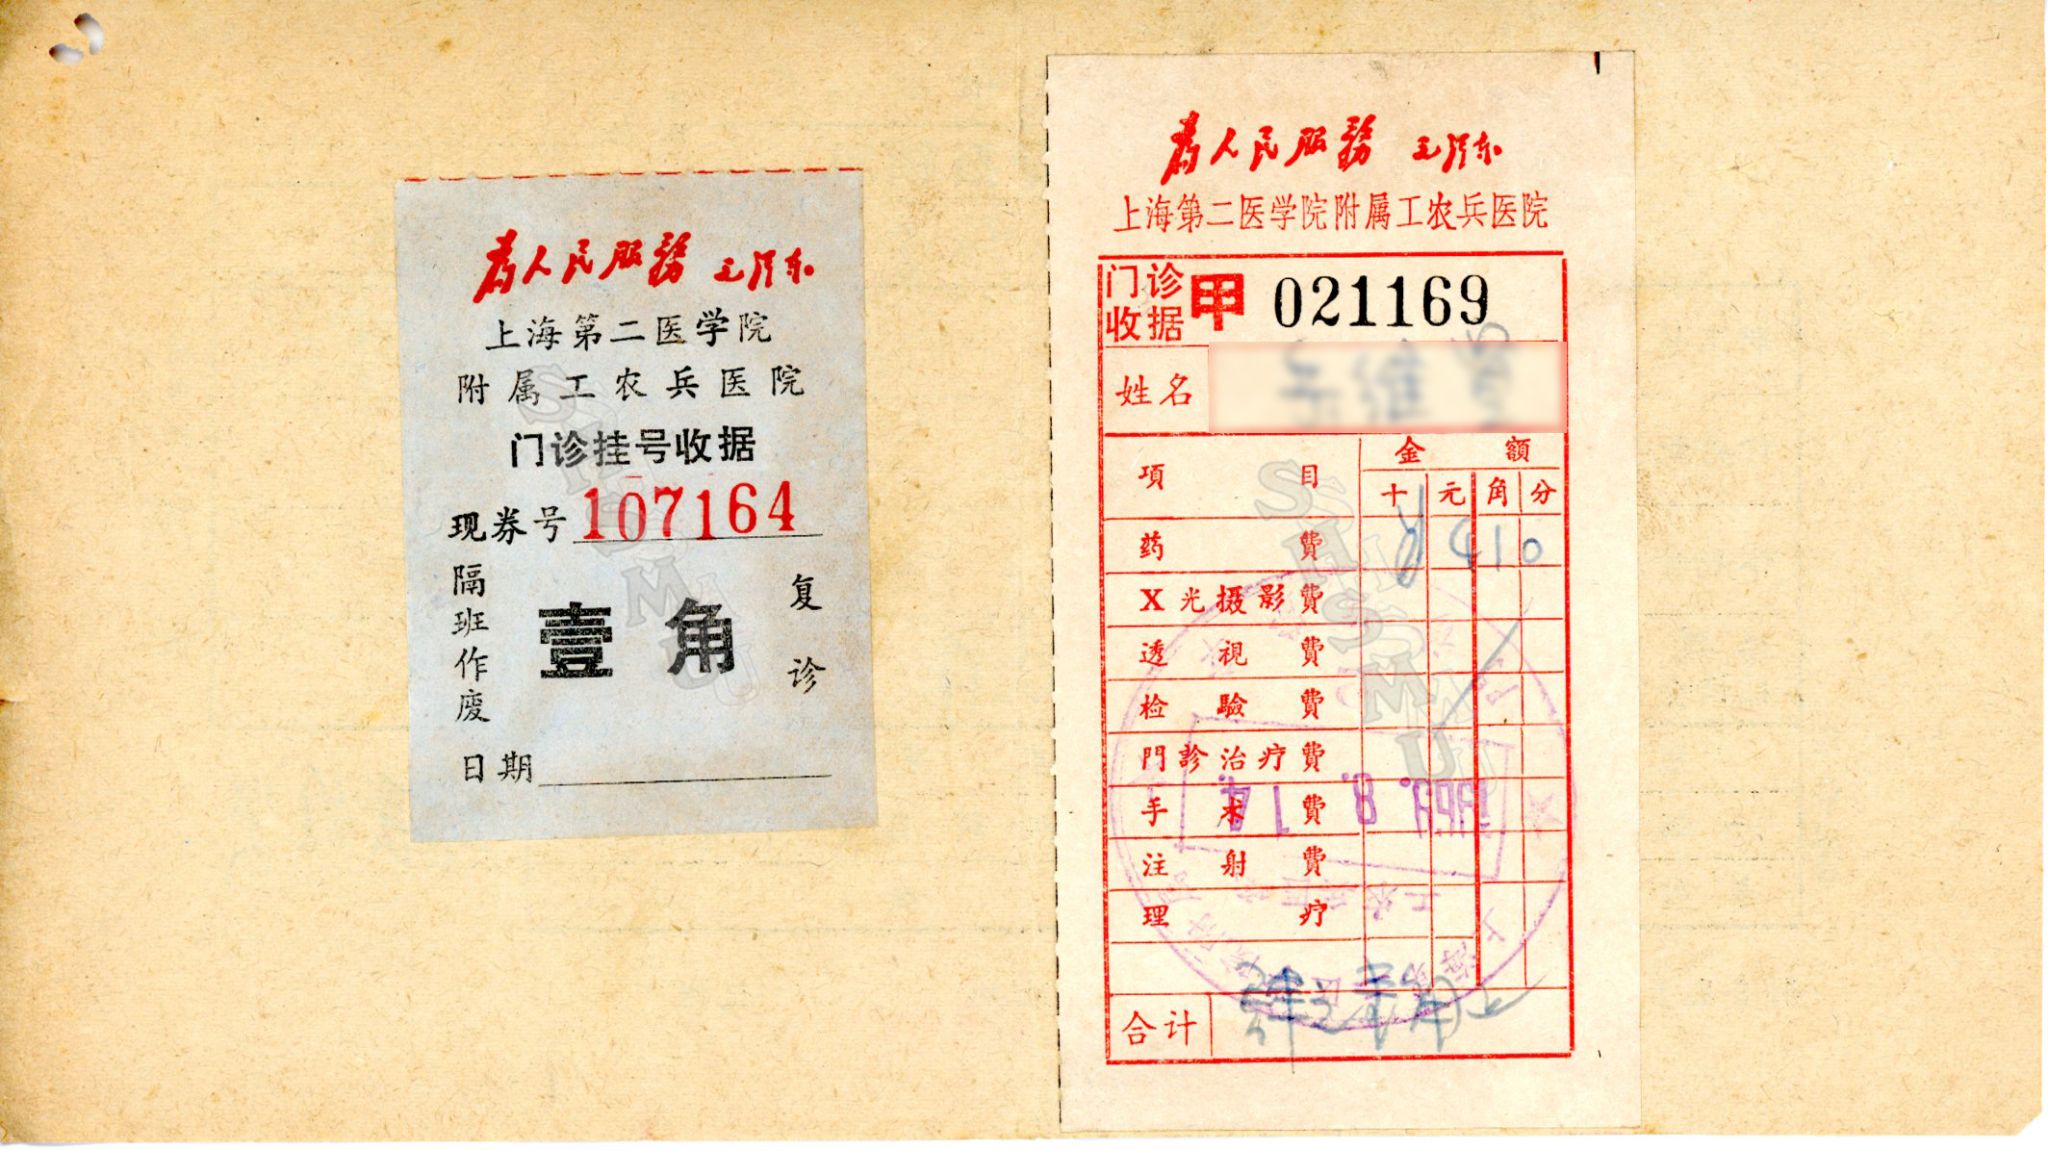 为人民服務 毛泽东
上海第二医学院
附属工农兵医院
门诊挂号收据
现券号 107164
隔班作废
壹角
复诊
日期
为人民服務 毛泽东
上海第二医学院附属工农兵医院
门诊收据 甲 021169
姓名
項目 金額
十 元 角 分
药費 ¥ 4 1 0
X光摄影費
透視費
检驗費
門診治疗費
手术費
1969. 8. 14
注射費
理疗
合计 肆元壹角正
SHSMU
SHSMU